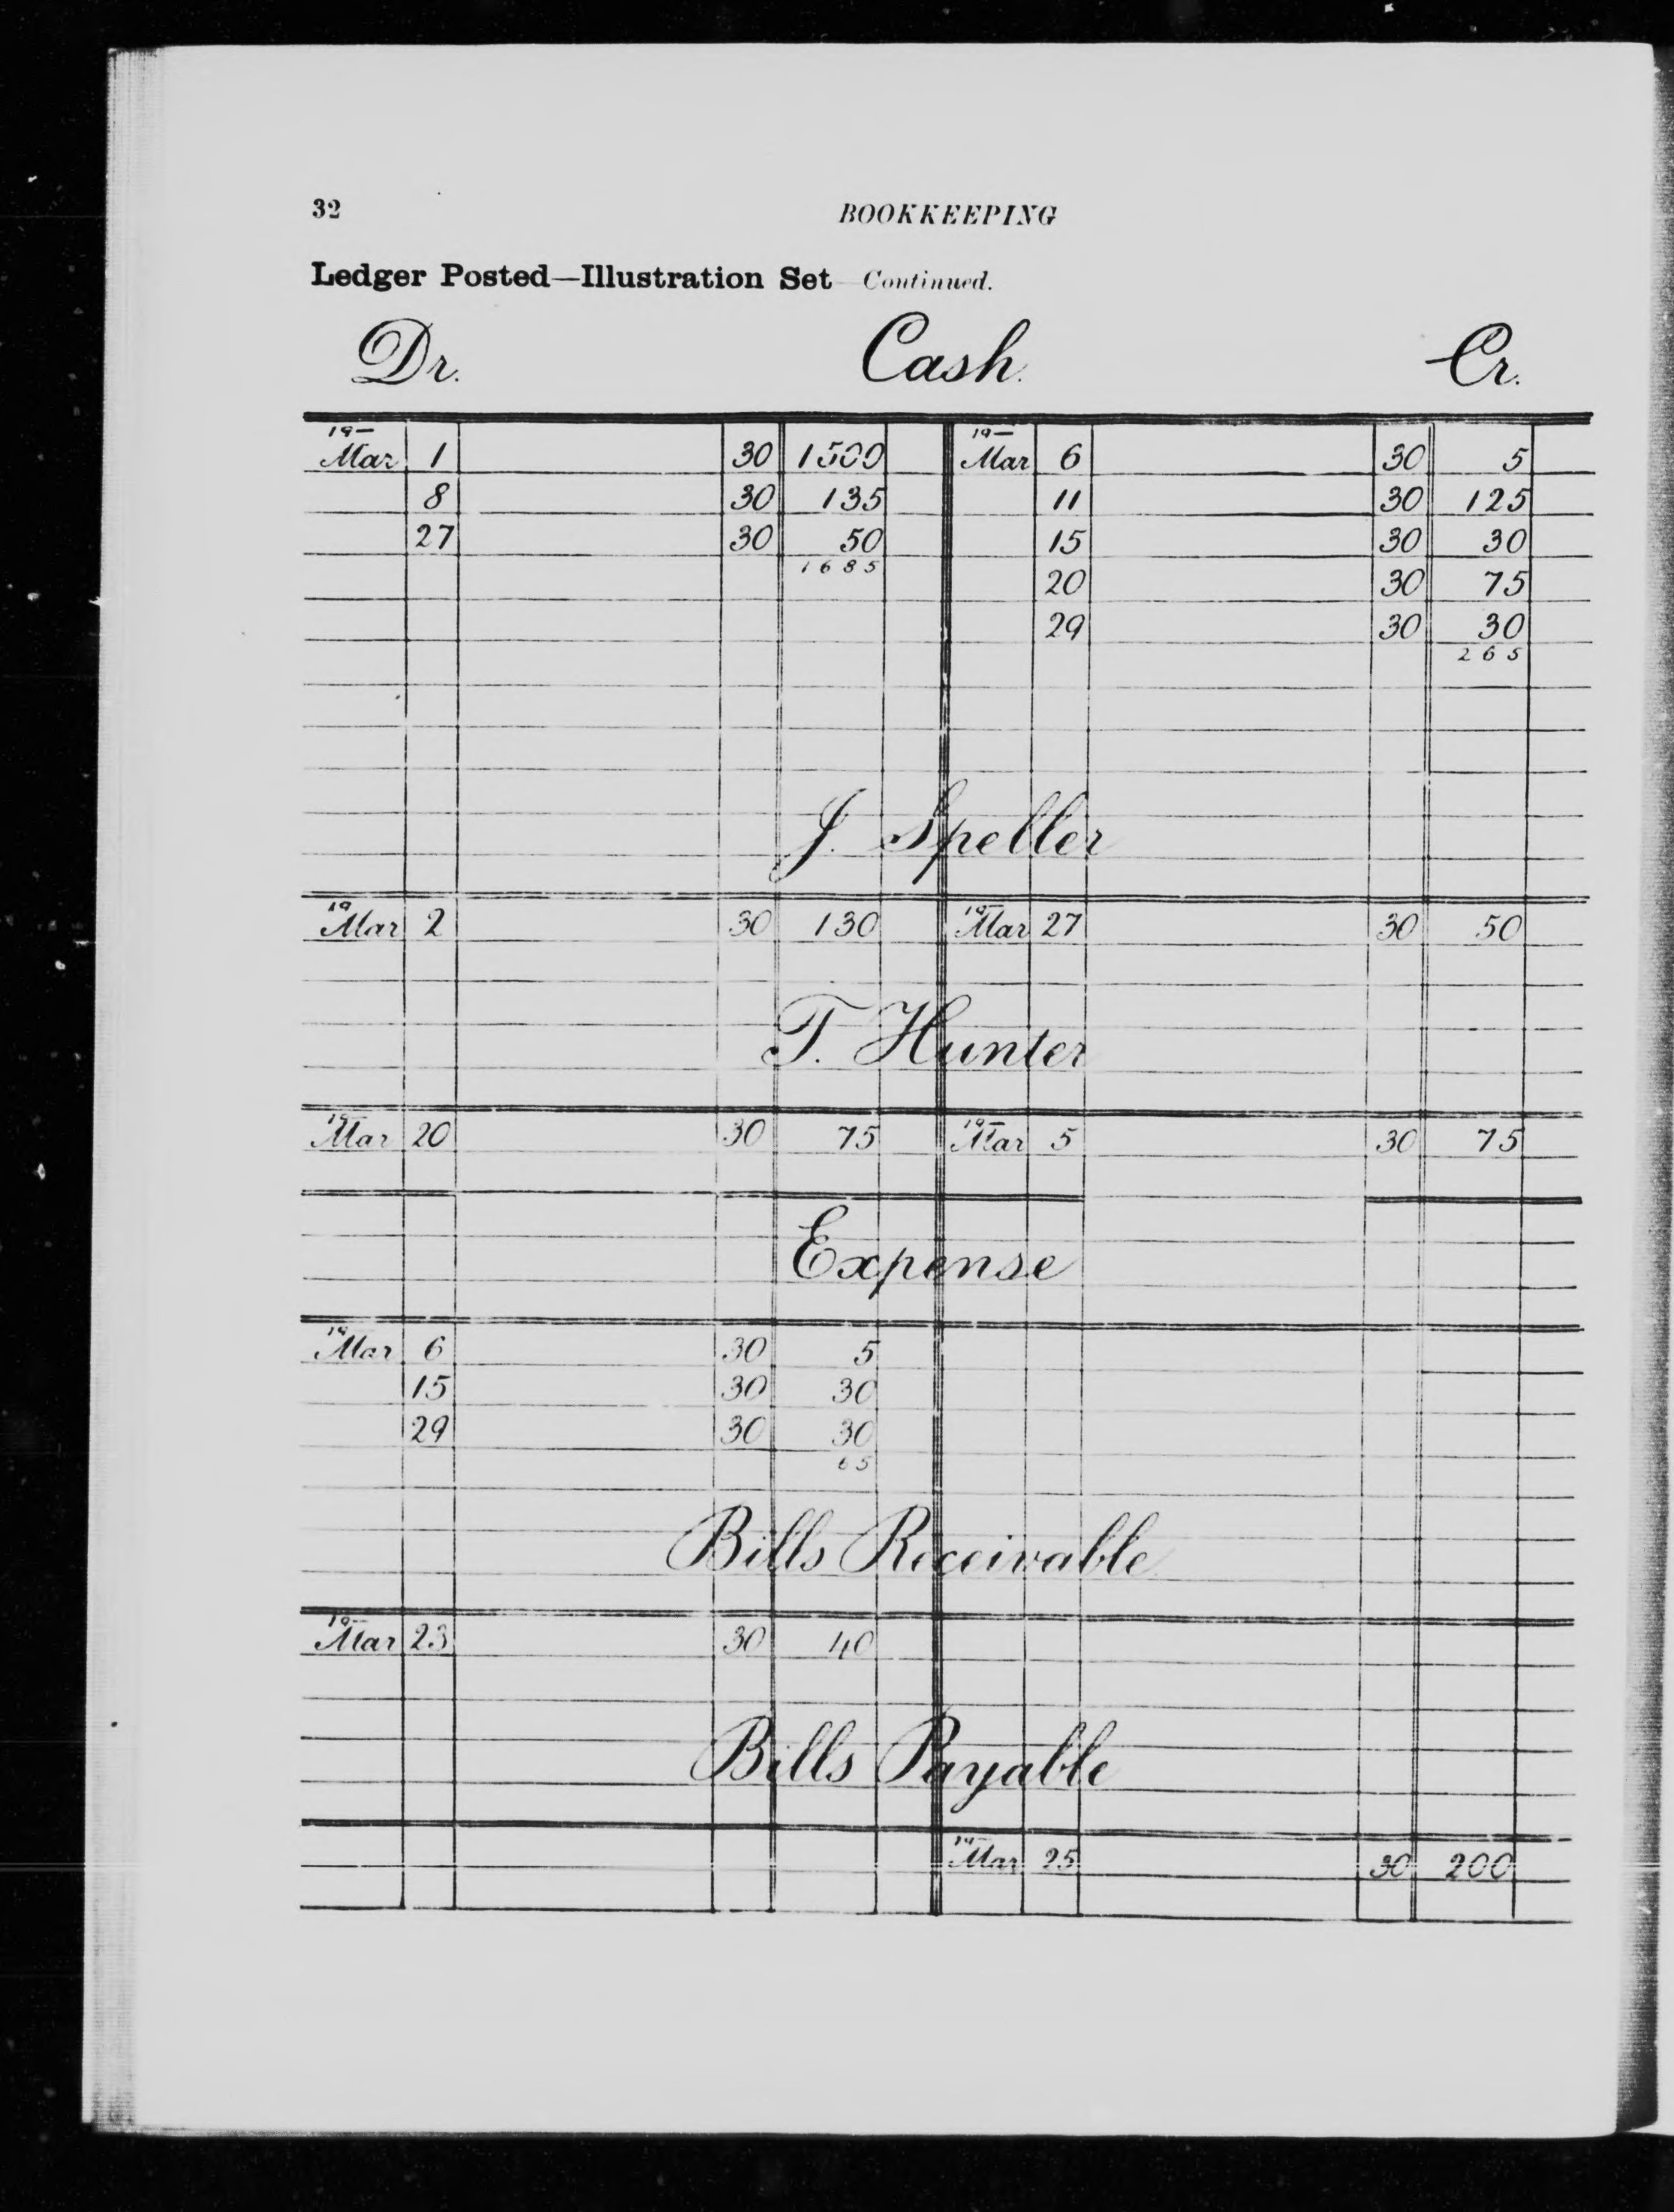 32 BOOKKEEPING
Ledger Posted—Illustration Set—Continued.
Dr. Cash. Cr.
19— 19—
Mar 1 30 1500 Mar 6 30 5
8 30 135 11 30 125
27 30 50 15 30 30
1685
20 30 75
29 30 30
265
J. Speller
19 19—
Mar 2 30 130 Mar 27 30 50
T. Hunter
19— 19—
Mar 20 30 75 Mar 5 30 75
Expense
19
Mar 6 30 5
15 30 30
29 30 30
65
Bills Receivable
19—
Mar 23 30 40
Bills Payable
19—
Mar 25 30 200